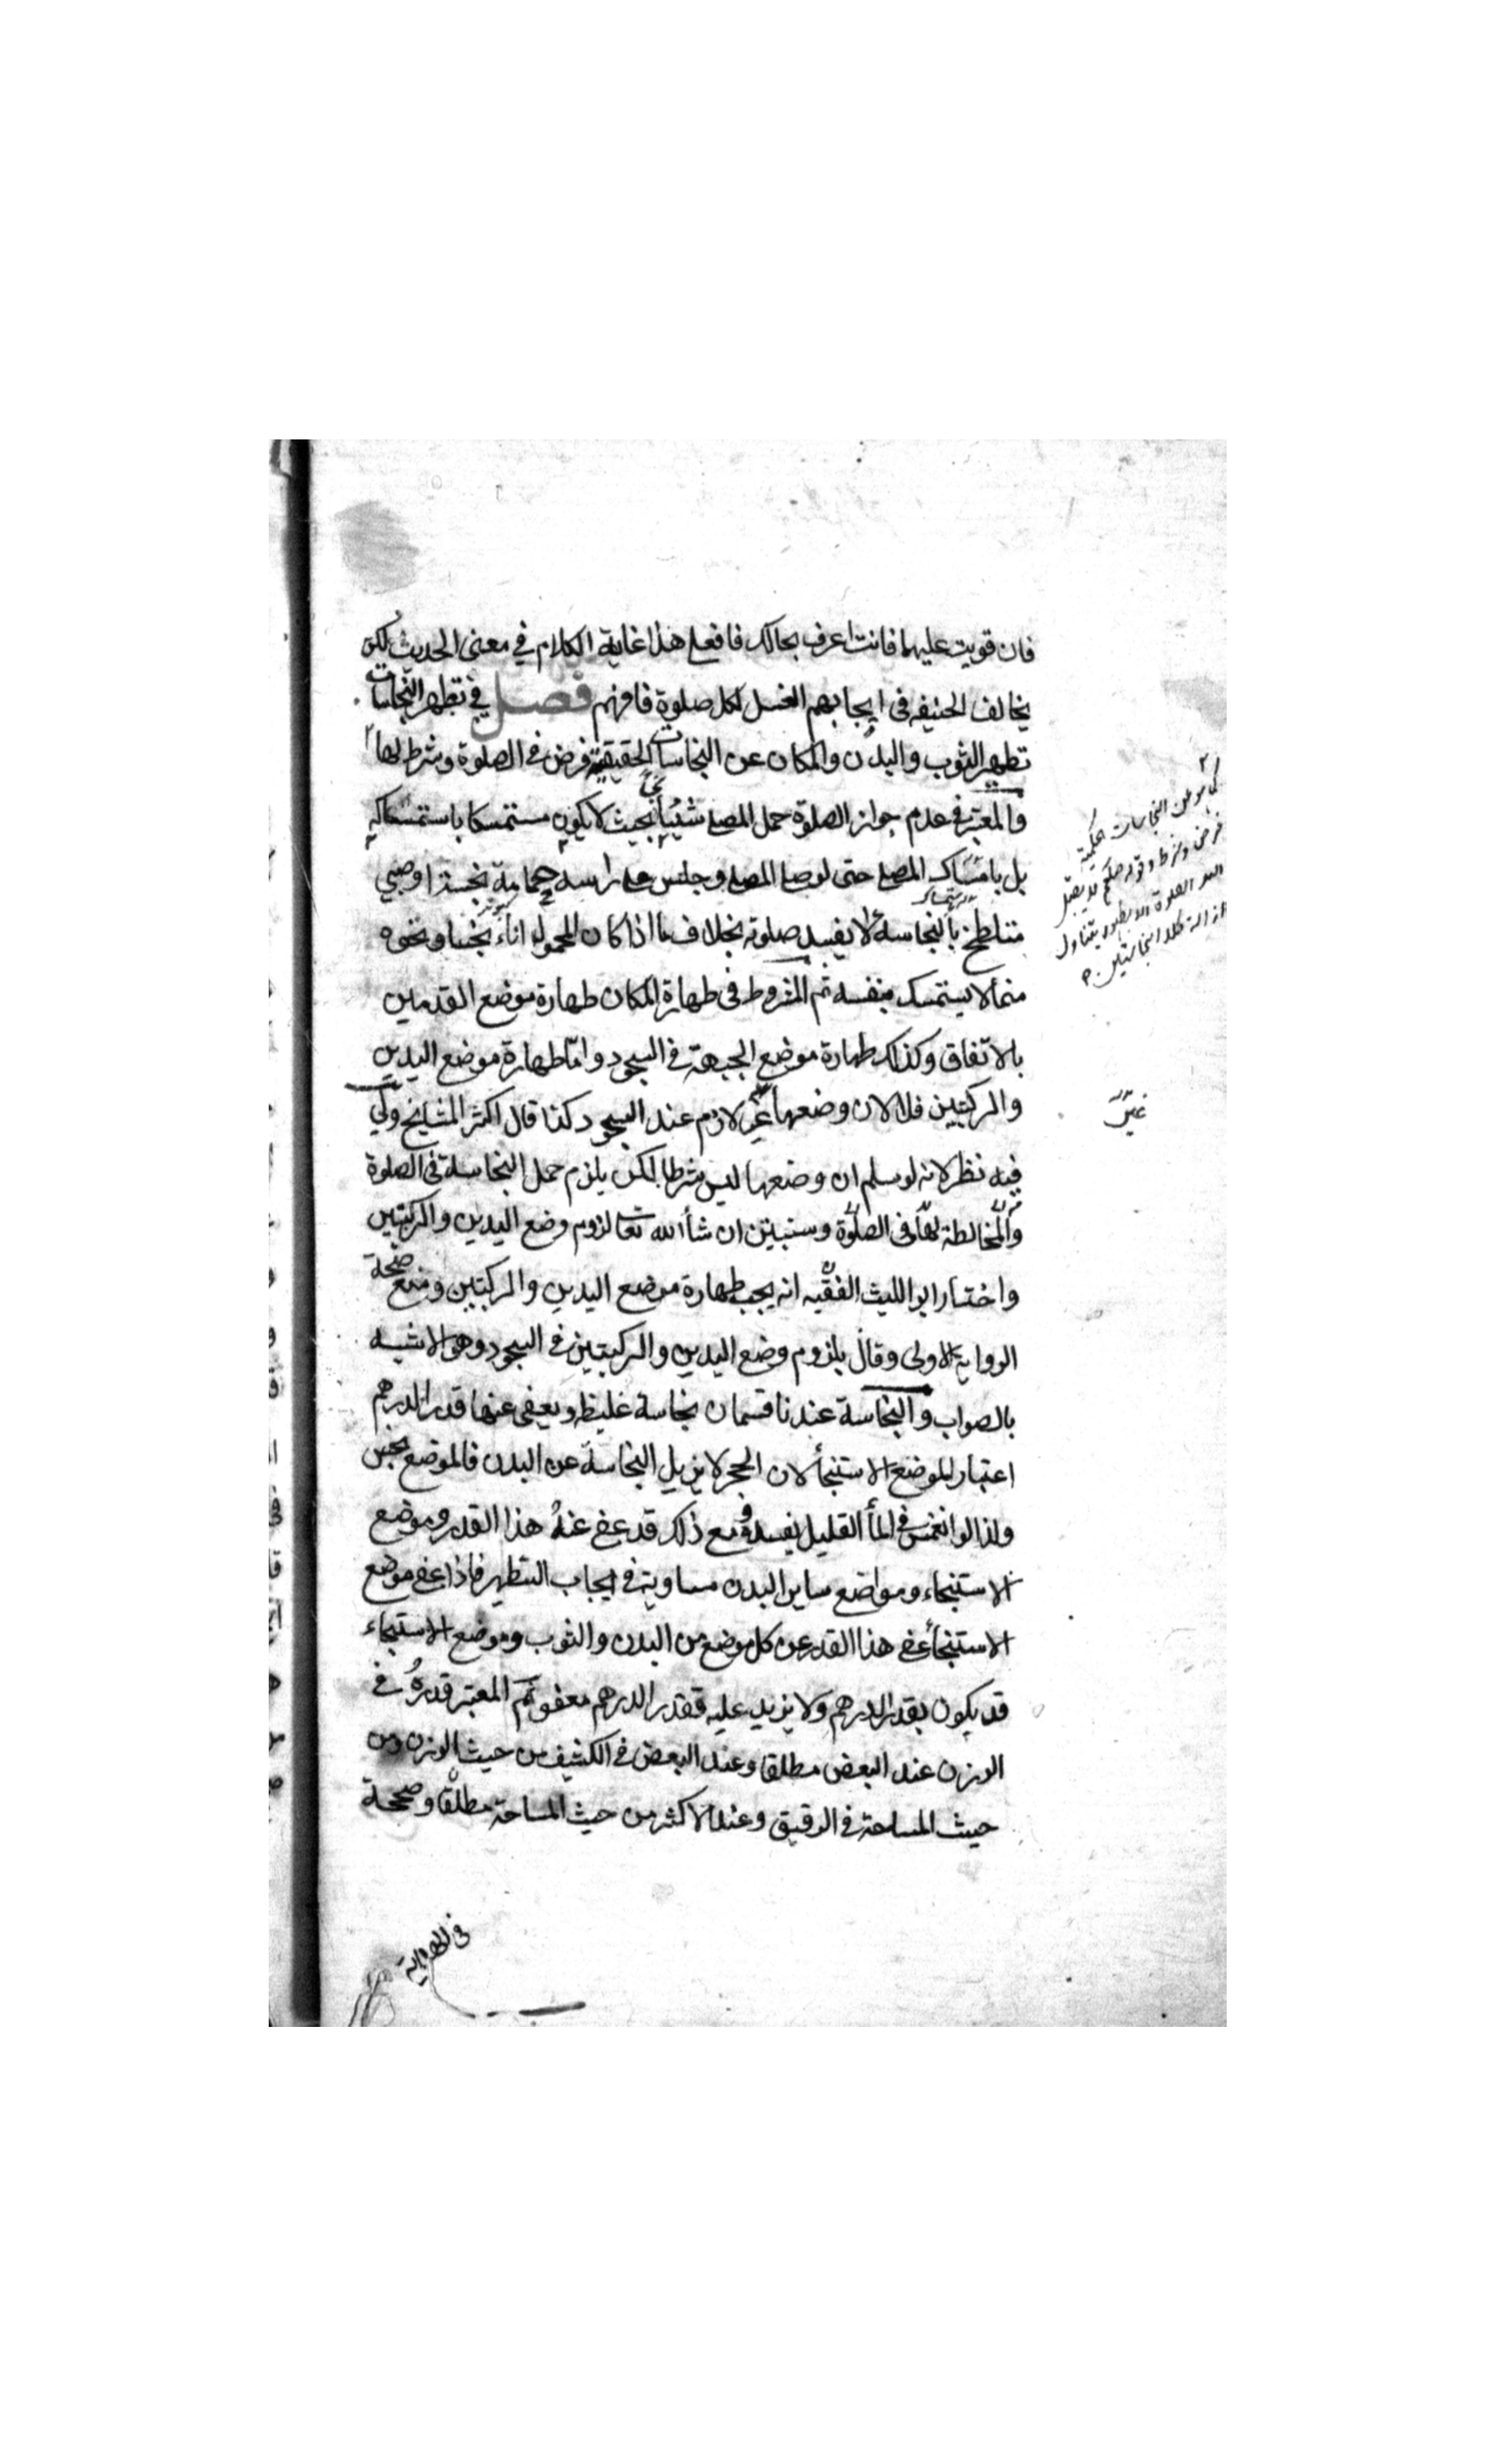 فان قويت عليهما فانت اعرف بحالك فافعل هذا غاية الكلام في معنى الحديث لكن
يخالف الحنيفه فى ايجابهم الغسل لكل صلوة فافهم فصل في تطهير النجاسات
تطهير الثوب والبدن والمكان عن النجاسات الحقيقية فرض في الصلوة وشرط لها
والمعتبر في عدم جواز الصلوة حمل المصلي شيئا نجسا بحيث لا يكون مستمسكا باستمساكه
بل بامساك المصلي حتى لو صلى المصلي وجلس على راسه حمامة نجسة او صبي
متلطخ بالنجاسة لا يفسد صلوته بخلاف ما اذا كان المحمول اناء نجسا ونحوه
مما لا يستمسك بنفسه ثم المشروط فى طهارة المكان طهارة موضع القدمين
بالاتفاق وكذلك طهارة موضع الجبهة في السجود واما طهارة موضع اليدين
والركبتين فلا لان وضعها غير لازم عند السجود كذا قال اكثر المشايخ ولي
فيه نظر لانه لو سلم ان وضعها ليس شرطا لكن يلزم حمل النجاسة فى الصلوة
والمخالطة لها فى الصلوة وسنبين ان شأ الله تعا لزوم وضع اليدين والركبتين
واختار ابو الليث الفقيه انه يجب طهارة موضع اليدين والركبتين ومنع صحة
الرواية الاولى وقال بلزوم وضع اليدين والركبتين في السجود وهو الاشبه
بالصواب والنجاسة عندنا قسمان نجاسة غليظه ويعفى عنها قدر الدرهم
اعتبار الموضع الاستنجأ لان الحجر لا يزيل النجاسة عن البدن فالموضع نجس
ولذا لو انغمس في المأ القليل يفسده ومع ذلك قد عفى عنه هذا القدر وموضع
الاستنجاء ومواضع ساير البدن مساوية في ايجاب التطهير فاذا عفى موضع
الاستنجأ عفى هذا القدر عن كل موضع من البدن والثوب وموضع الاستنجاء
قد يكون بقدر الدرهم ولا يزيد عليه فقدر الدرهم معفو ثم المعتبر قدره في
الوزن عند البعض مطلقا وعند البعض في الكثيف من حيث الوزن ومن
حيث المساحة في الرقيق وعند الاكثر من حيث المساحة مطلقا وصححه
في الهداية
كما هو عن النجاسات الحكمية
فرض وشرط وقوله صلعم لا يقبل
الله الصلوة الا بطهور يتناول
ازالة كلا النجاستين
غير